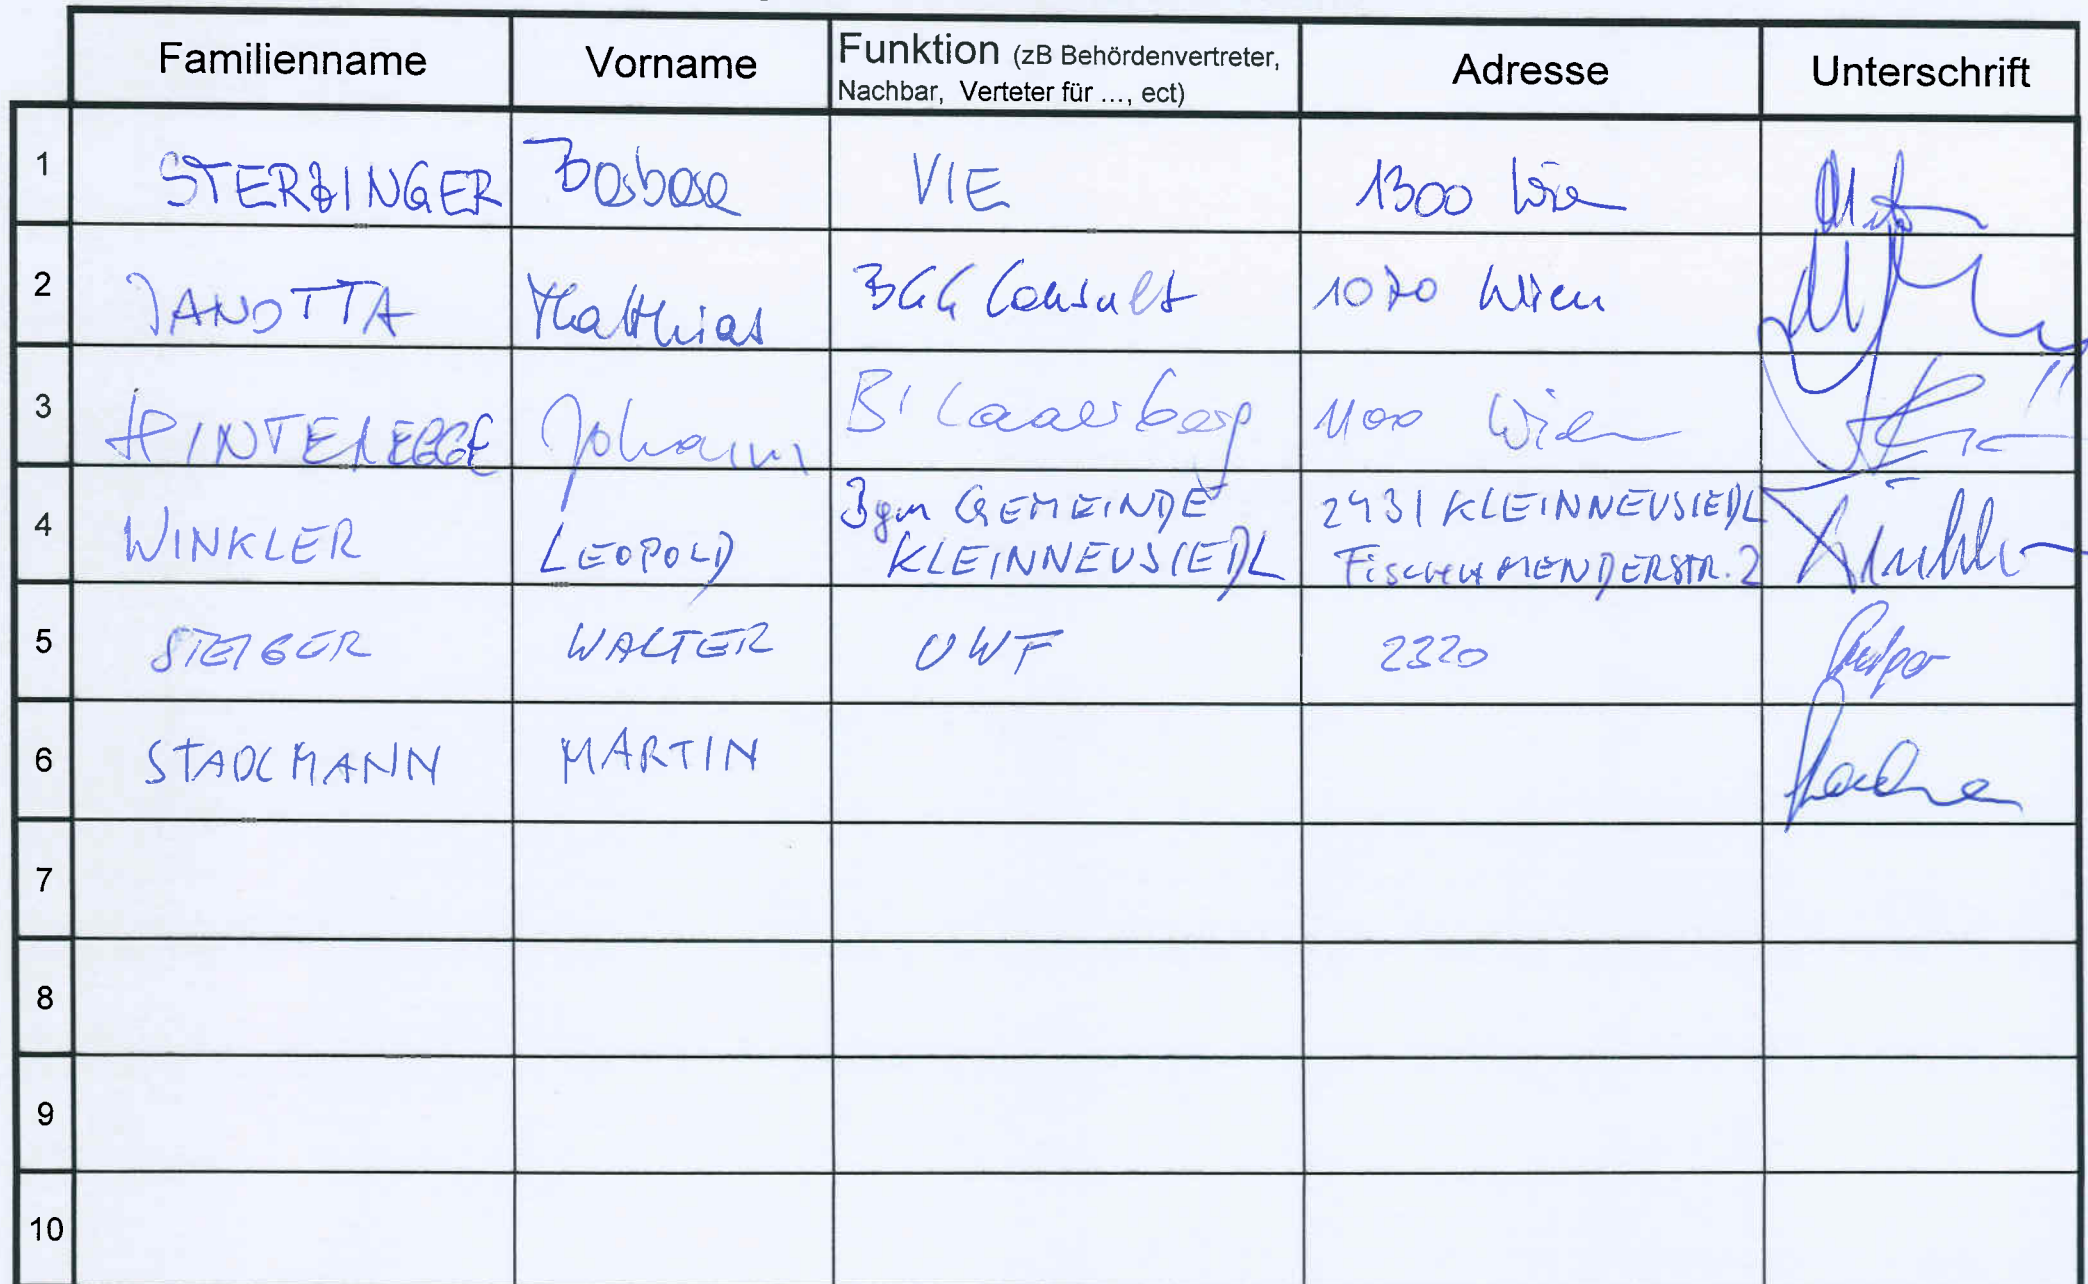 Familienname Vorname Funktion (zB Behördenvertreter, Adresse Unterschrift
Nachbar, Verteter für ..., ect)
1 STERZINGER Barbara VIE 1300 Wien
2 JANOTTA Matthias BGG Consult 1070 Wien
3 HINTEREGGE Johann BI Laaerberg 1100 Wien
4 WINKLER LEOPOLD Bgm GEMEINDE 2431 KLEINNEUSIEDL
KLEINNEUSIEDL FischaMENDERSTR. 2
5 STEIGER WALTER UWF 2320
6 STADLMANN MARTIN
7
8
9
10